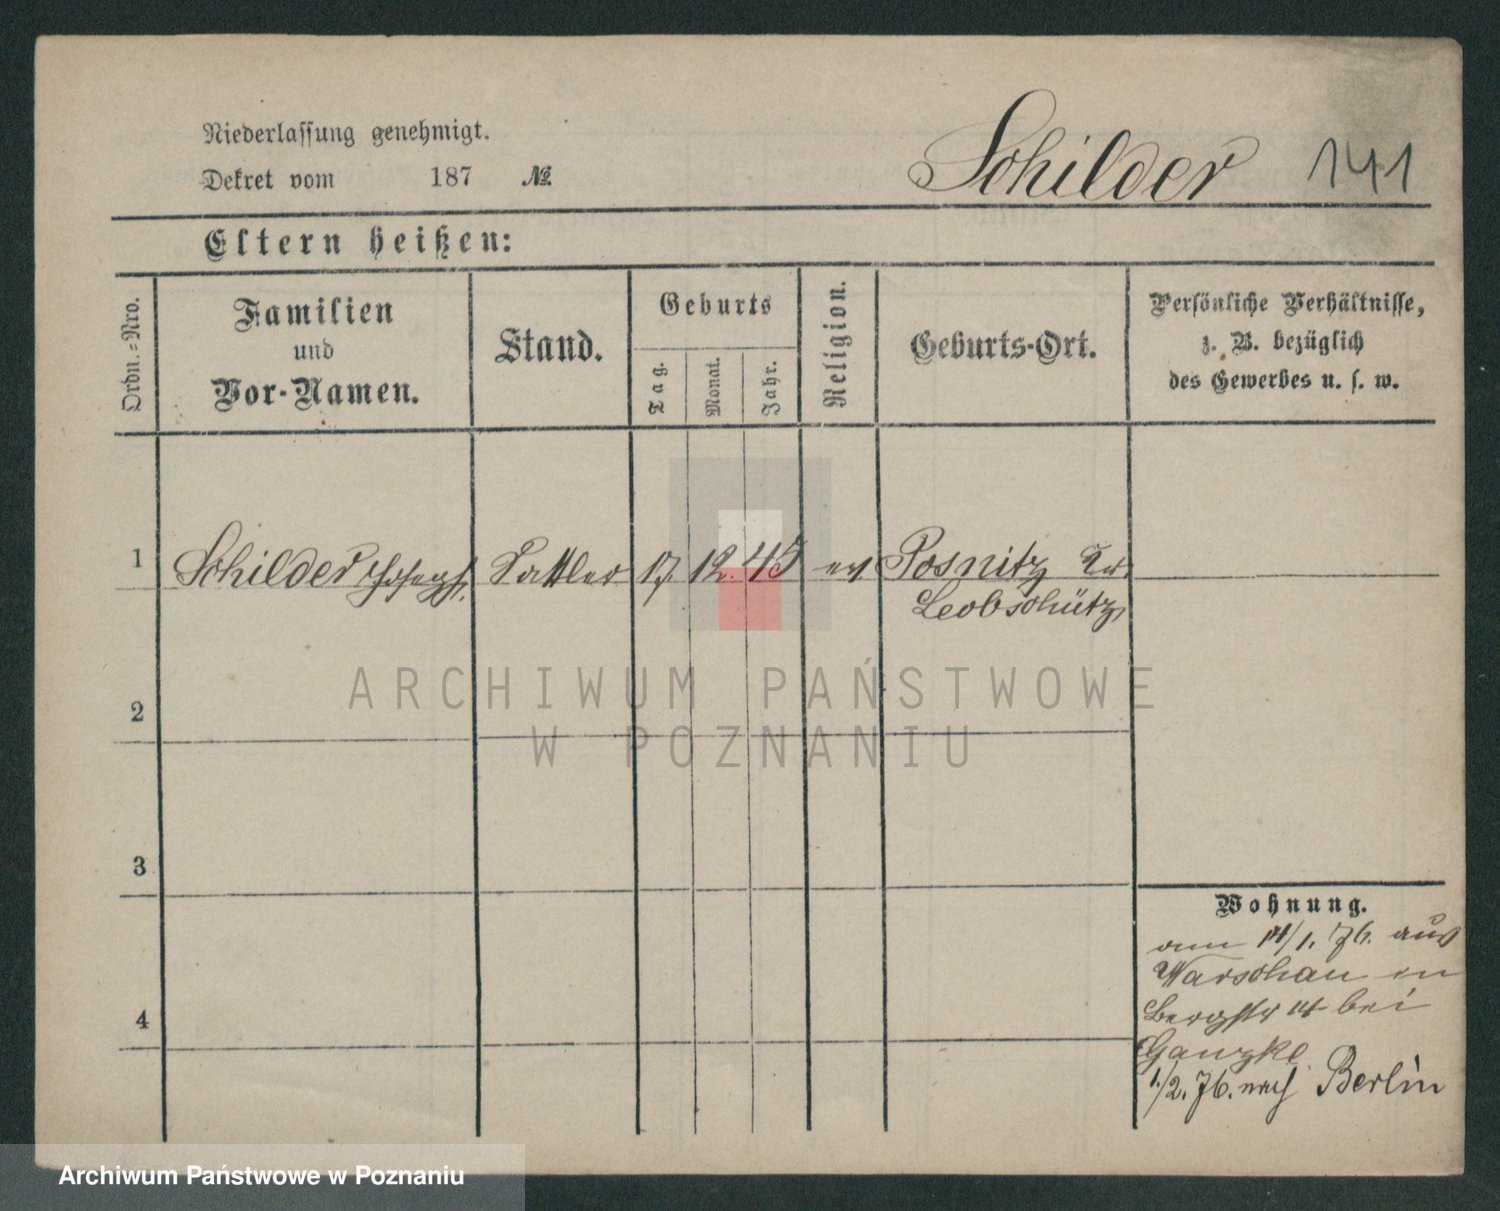 Niederlassung genehmigt.
Dekret vom 187 №
Schilder 141
Eltern heißen:
Ordn.-Nro.
Familien
und
Vor-Namen.
Stand.
Geburts
Tag.
Monat.
Jahr.
Religion.
Geburts-Ort.
Persönliche Verhältnisse,
z. B. bezüglich
des Gewerbes u. s. w.
1 Schilder Joseph. Sattler 17. 12. 45 ev Posnitz Kr.
Leobschütz
2
3
4
Wohnung.
am 14/1. 76. aus
Warschau in
Bergstr 14 bei
1./2. 76. nach Berlin
ARCHIWUM PAŃSTWOWE
W POZNANIU
Archiwum Państwowe w Poznaniu